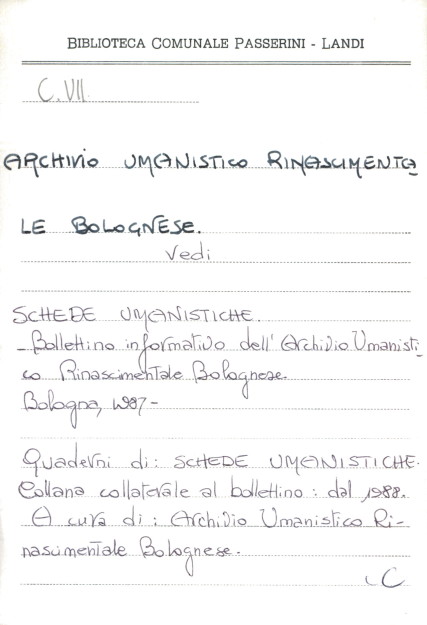 BIBLIOTECA COMUNALE PASSERINI - LANDI
C.VII.
ARCHIVIO UMANISTICO RINASCIMENTA
LE BOLOGNESE.
Vedi
SCHEDE UMANISTICHE.
-Bollettino informativo dell'Archivio Umanisti
co Rinascimentale Bolognese.
Bologna, 1987-
Quaderni di: SCHEDE UMANISTICHE.
Collana collaterale al bollettino: dal 1988.
A cura di: Archivio Umanistico Ri-
nascimentale Bolognese.
C